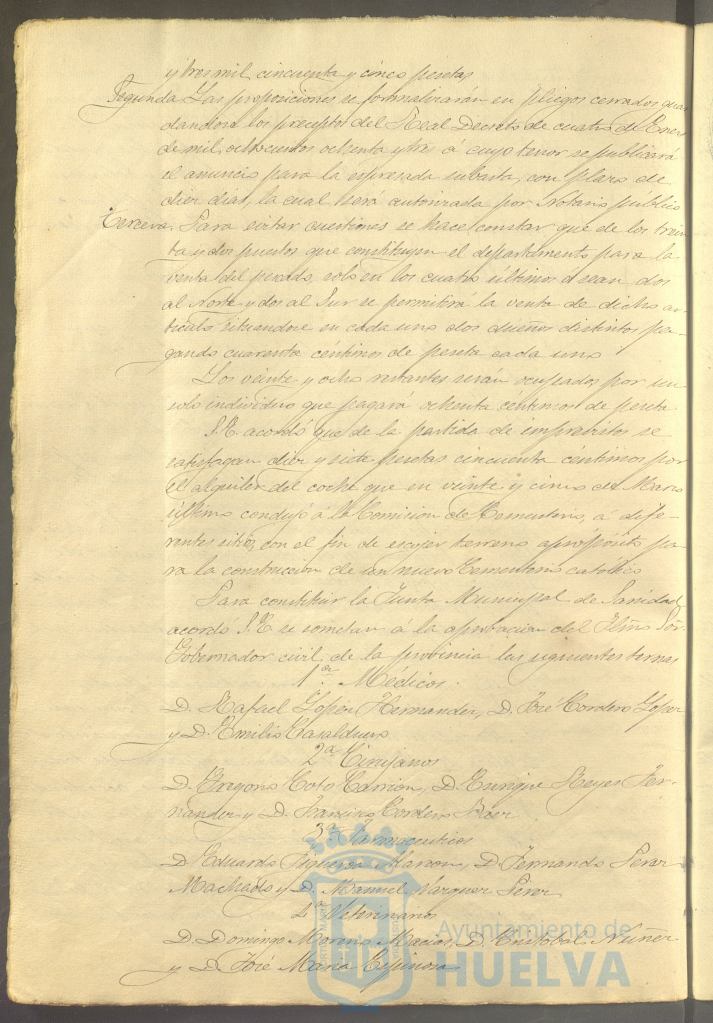 y tres mil cincuenta y cinco pesetas
Segunda. Las proposiciones se formalizarán en pliegos cerrados guar
dandose los preceptos del Real Decreto de cuatro de Enero
de mil ochocientos ochenta y tres á cuyo tenor se publicará
el anuncio para la espresada subasta, con plazo de
diez dias, la cual será autorizada por Notario público
Tercera. Para evitar cuestiones se hace constar que de los trein
ta y dos puestos que constituyen el departamento para la
venta del pescado, solo en los cuatro últimos ó sean dos
al Norte y dos al Sur se permitirá la venta de dicho ar-
tículo situandose en cada uno dos dueños distintos pa-
gando cuarenta céntimos de peseta cada uno
Los veinte y ocho restantes serán ocupados por un
solo individuo que pagará ochenta centimos de peseta
S.E. acordó que de la partida de imprevistos se
satisfagan diez y siete pesetas cincuenta centimos por
el alquiler del coche que en veinte y cinco de Marzo
último condujó á la Comision de Cementerio, á dife-
rentes sitios, con el fin de escojer terreno apropósito pa-
ra la construccion de un nuevo Cementerio católico
Para constituir la Junta Municipal de Sanidad
acordó S.E. se sometan á la aprobacion del Ilmo Señor
Gobernador civil de la provincia las siguientes ternas
1ª Médicos.
D. Rafael Lopez Hernandez, D. José Cordero Lopez
y D. Emilio Casalduero
2ª Cirujanos
D. Coto Carrion, D. Enrique Reyes Fer-
nandez y D. Francisco Cordero
3ª Farmaceuticos
D. Eduardo Figueroa D. Fernando Perez
Machado y D. Manuel Vazquez Perez
4ª Veterinarios
D. Domingo Moreno Macias, D. Cristobal Nuñez
y D. José Maria Espinosa
Ayuntamiento de
HUELVA